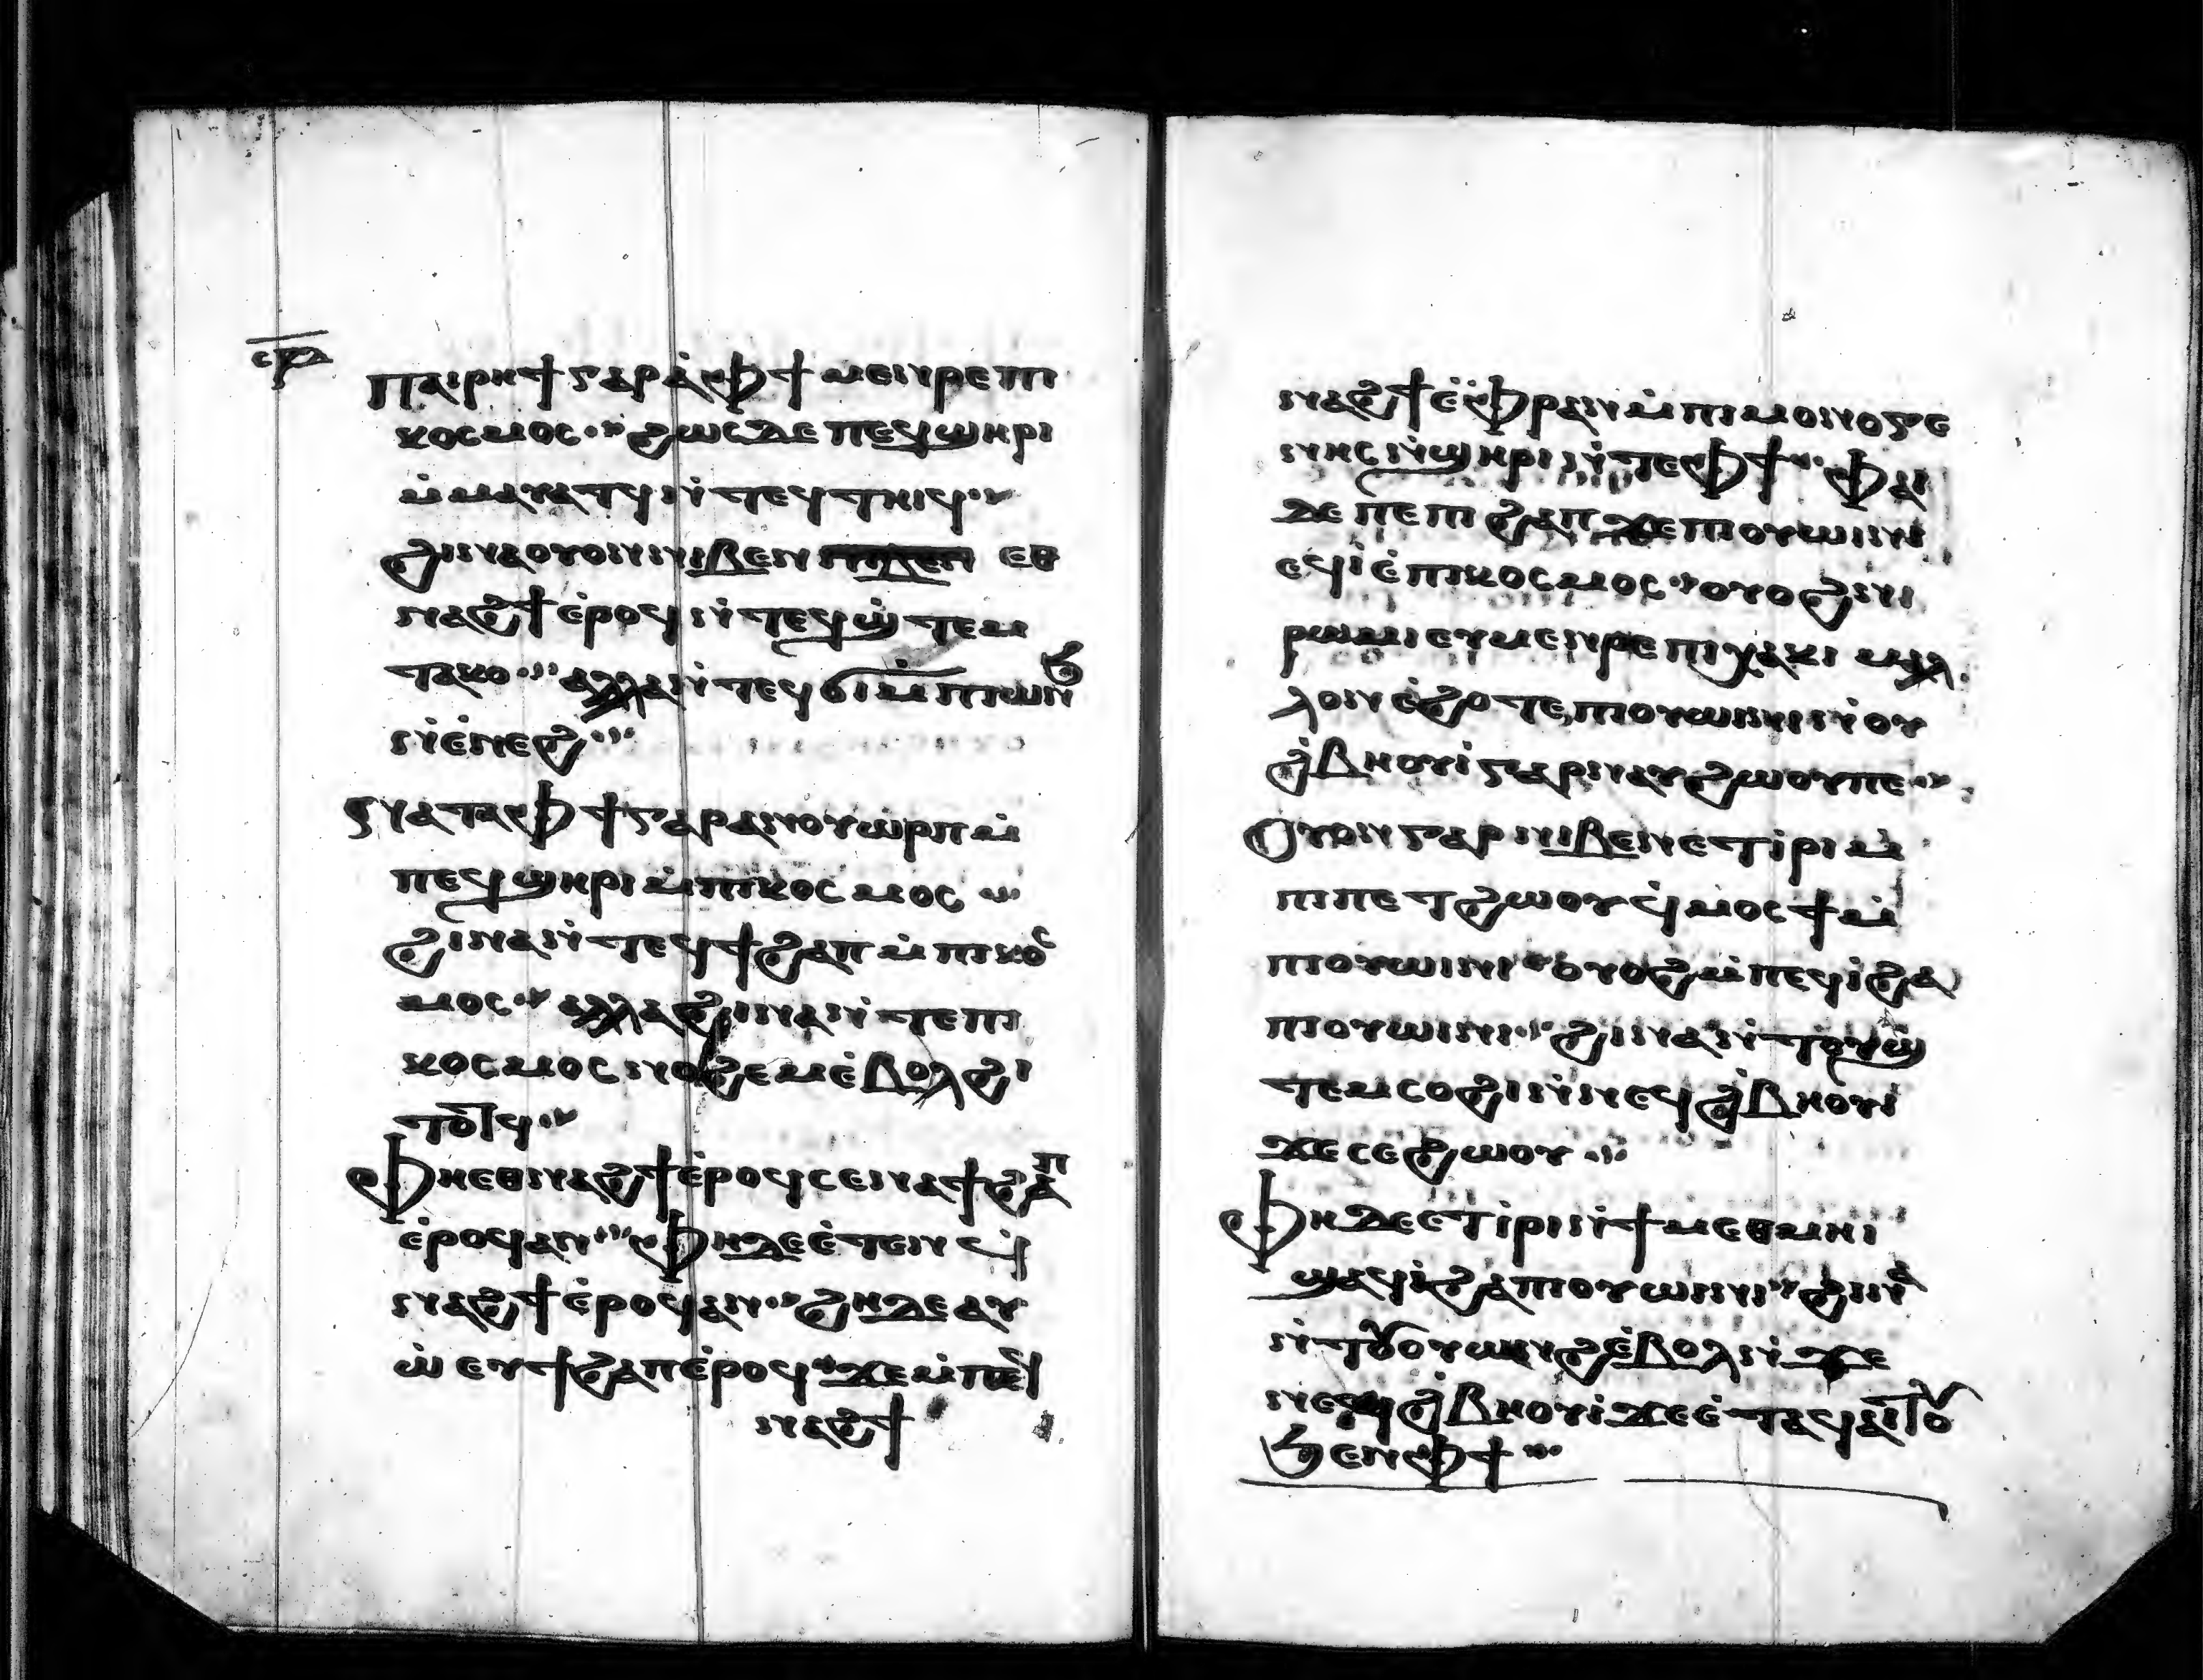 ⲥⲣⲇ
ⲡⲁⲓⲣⲏϯ ⲅⲁⲣ ⲁ̀ⲫϯ ⲙⲉⲛⲣⲉ ⲡⲓ
ⲕⲟⲥⲙⲟⲥ ϩⲱⲥⲇⲉ ⲡⲉϥϣⲏⲣⲓ
ⲙ̀ⲙⲁⲩⲁⲧϥ ⲛ̀ⲧⲉϥⲧⲏⲓϥ
ϩⲓⲛⲁ ⲟⲩⲟⲛ ⲛⲓⲃⲉⲛ ⲉⲑ
ⲛⲁϩϯ ⲉ̀ⲣⲟϥ ⲛ̀ⲧⲉϥϣ̀ⲧⲉⲙ
ⲧⲁⲕⲟ ⲁⲗⲗⲁ ⲛ̀ⲧⲉϥϭⲓ ⲙ̀ⲡⲓⲱⲛϧ
ⲛ̀ⲉ̀ⲛⲉϩ
ⲛⲁⲧⲁⲫϯ ⲅⲁⲣ ⲁⲛ ⲟⲩⲱ̀ⲣⲡ ⲙ̀
ⲡⲉϥϣⲏⲣⲓ ⲙ̀ⲡⲓⲕⲟⲥⲙⲟⲥ
ϩⲓⲛⲁ ⲛ̀ⲧⲉϥϯϩⲁⲡ ⲙ̀ⲡⲓⲕⲟⲥ
ⲙⲟⲥ ⲁⲗⲗⲁ ϩⲓⲛⲁ ⲛ̀ⲧⲉ ⲡⲓ
ⲕⲟⲥⲙⲟⲥ ⲛⲟϩⲉⲙ ⲉ̀ⲃⲟⲗ ϩⲓ
ⲧⲟⲧϥ
ⲫⲏ ⲉⲑⲛⲁϩϯ ⲉ̀ⲣⲟϥ ⲥⲉⲛⲁϯϩⲁⲡ
ⲉ̀ⲣⲟϥ ⲁⲛ ⲫⲏ ⲇⲉ ⲉ̀ⲧⲉⲛϥ̀
ⲛⲁϩϯ ⲉ̀ⲣⲟϥ ⲁⲛ ϩⲏⲇⲉ ⲁⲩ
ⲱ̀ ⲉⲩϯϩⲁⲡ ⲉ̀ⲣⲟϥ ϫⲉ ⲙ̀ⲡⲉϥ
ⲛⲁϩϯ
ⲛⲁϩϯ ⲉ̀ⲫ̀ⲣⲁⲛ ⲙ̀ⲡⲓⲙⲟⲛⲟⲅⲉ
ⲛⲏⲥ ⲛ̀ϣⲏⲣⲓ ⲛ̀ⲧⲉ ⲫϯ ⲫⲁⲓ
ⲇⲉ ⲡⲉ ⲡⲓϩⲁⲡ ϫⲉ ⲡⲓⲟⲩⲱⲓⲛⲓ
ⲉϥⲓ̀ ⲉ̀ⲡⲓⲕⲟⲥⲙⲟⲥ ⲟⲩⲟϩ ⲛⲓ
ⲣⲱⲙⲓ ⲉⲩⲙⲉⲛⲣⲉ ⲡⲓⲭⲁⲕⲓ ⲙⲁⲗ
ⲗⲟⲛ ⲉ̀ϩⲟⲧⲉ ⲡⲓⲟⲩⲱⲓⲛⲓ ⲛ̀ⲟⲩ
ϩ̀ⲃⲏⲟⲩⲓ̀ ⲅⲁⲣ ⲛⲁⲩϩⲱⲟⲩ ⲡⲉ
ⲟⲩⲟⲛ ⲅⲁⲣ ⲛⲓⲃⲉⲛ ⲉⲧⲓ̀ⲣⲓ ⲙ̀
ⲡⲓⲡⲉⲧϩⲱⲟⲩ ϥ̀ⲙⲟⲥϯ ⲙ̀
ⲡⲓⲟⲩⲱⲓⲛⲓ ⲟⲩⲟϩ ⲙ̀ⲡⲉϥⲓ̀ ϩⲁ
ⲡⲓⲟⲩⲱⲓⲛⲓ ϩⲓⲛⲁ ⲛ̀ⲧⲟⲩϣ̀
ⲧⲉⲙⲥⲟϩⲓ ⲛ̀ⲛⲉϥϩ̀ⲃⲏⲟⲩⲓ
ϫⲉ ⲥⲉϩⲱⲟⲩ
ⲫⲏ ⲇⲉ ⲉⲧⲓ̀ⲣⲓ ⲛ̀ϯⲙⲉⲑⲙⲏⲓ
ϣⲁϥⲓ̀ ϩⲁ ⲡⲓⲟⲩⲱⲓⲛⲓ ϩⲓⲛⲁ
ⲛ̀ⲧⲟⲩⲟⲩⲱⲛϩ ⲉ̀ⲃⲟⲗ ⲛ̀ϫⲉ
ⲛⲉϥϩ̀ⲃⲏⲟⲩⲓ̀ ϫⲉ ⲉ̀ⲧⲁϥⲁⲓⲧⲟⲩ
ϧⲉⲛ ⲫϯ